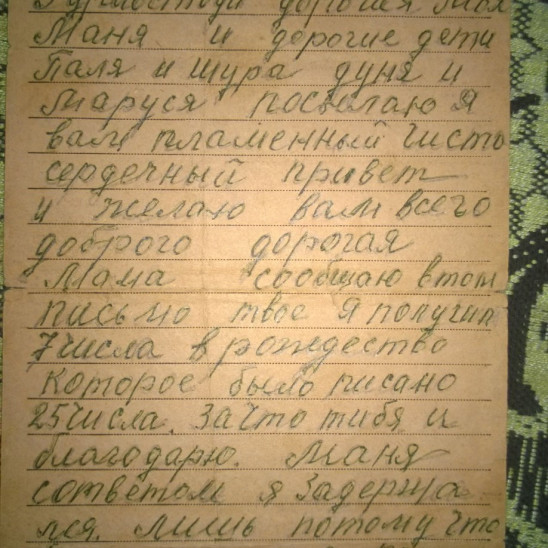 Здравствуй дорогая моя
Маня и дорогие дети
Паля и шура дуня и
Маруся посылаю я
вам пламенный чисто
сердечный привет
и желаю вам всего
доброго дорогая
Мама сообщаю втом
письмо твое я получил
7 числа в рождество
которое было писано
25 числа. за что тибя и
благодарю. Маня
сответом я задержа
лся. лишь потому что